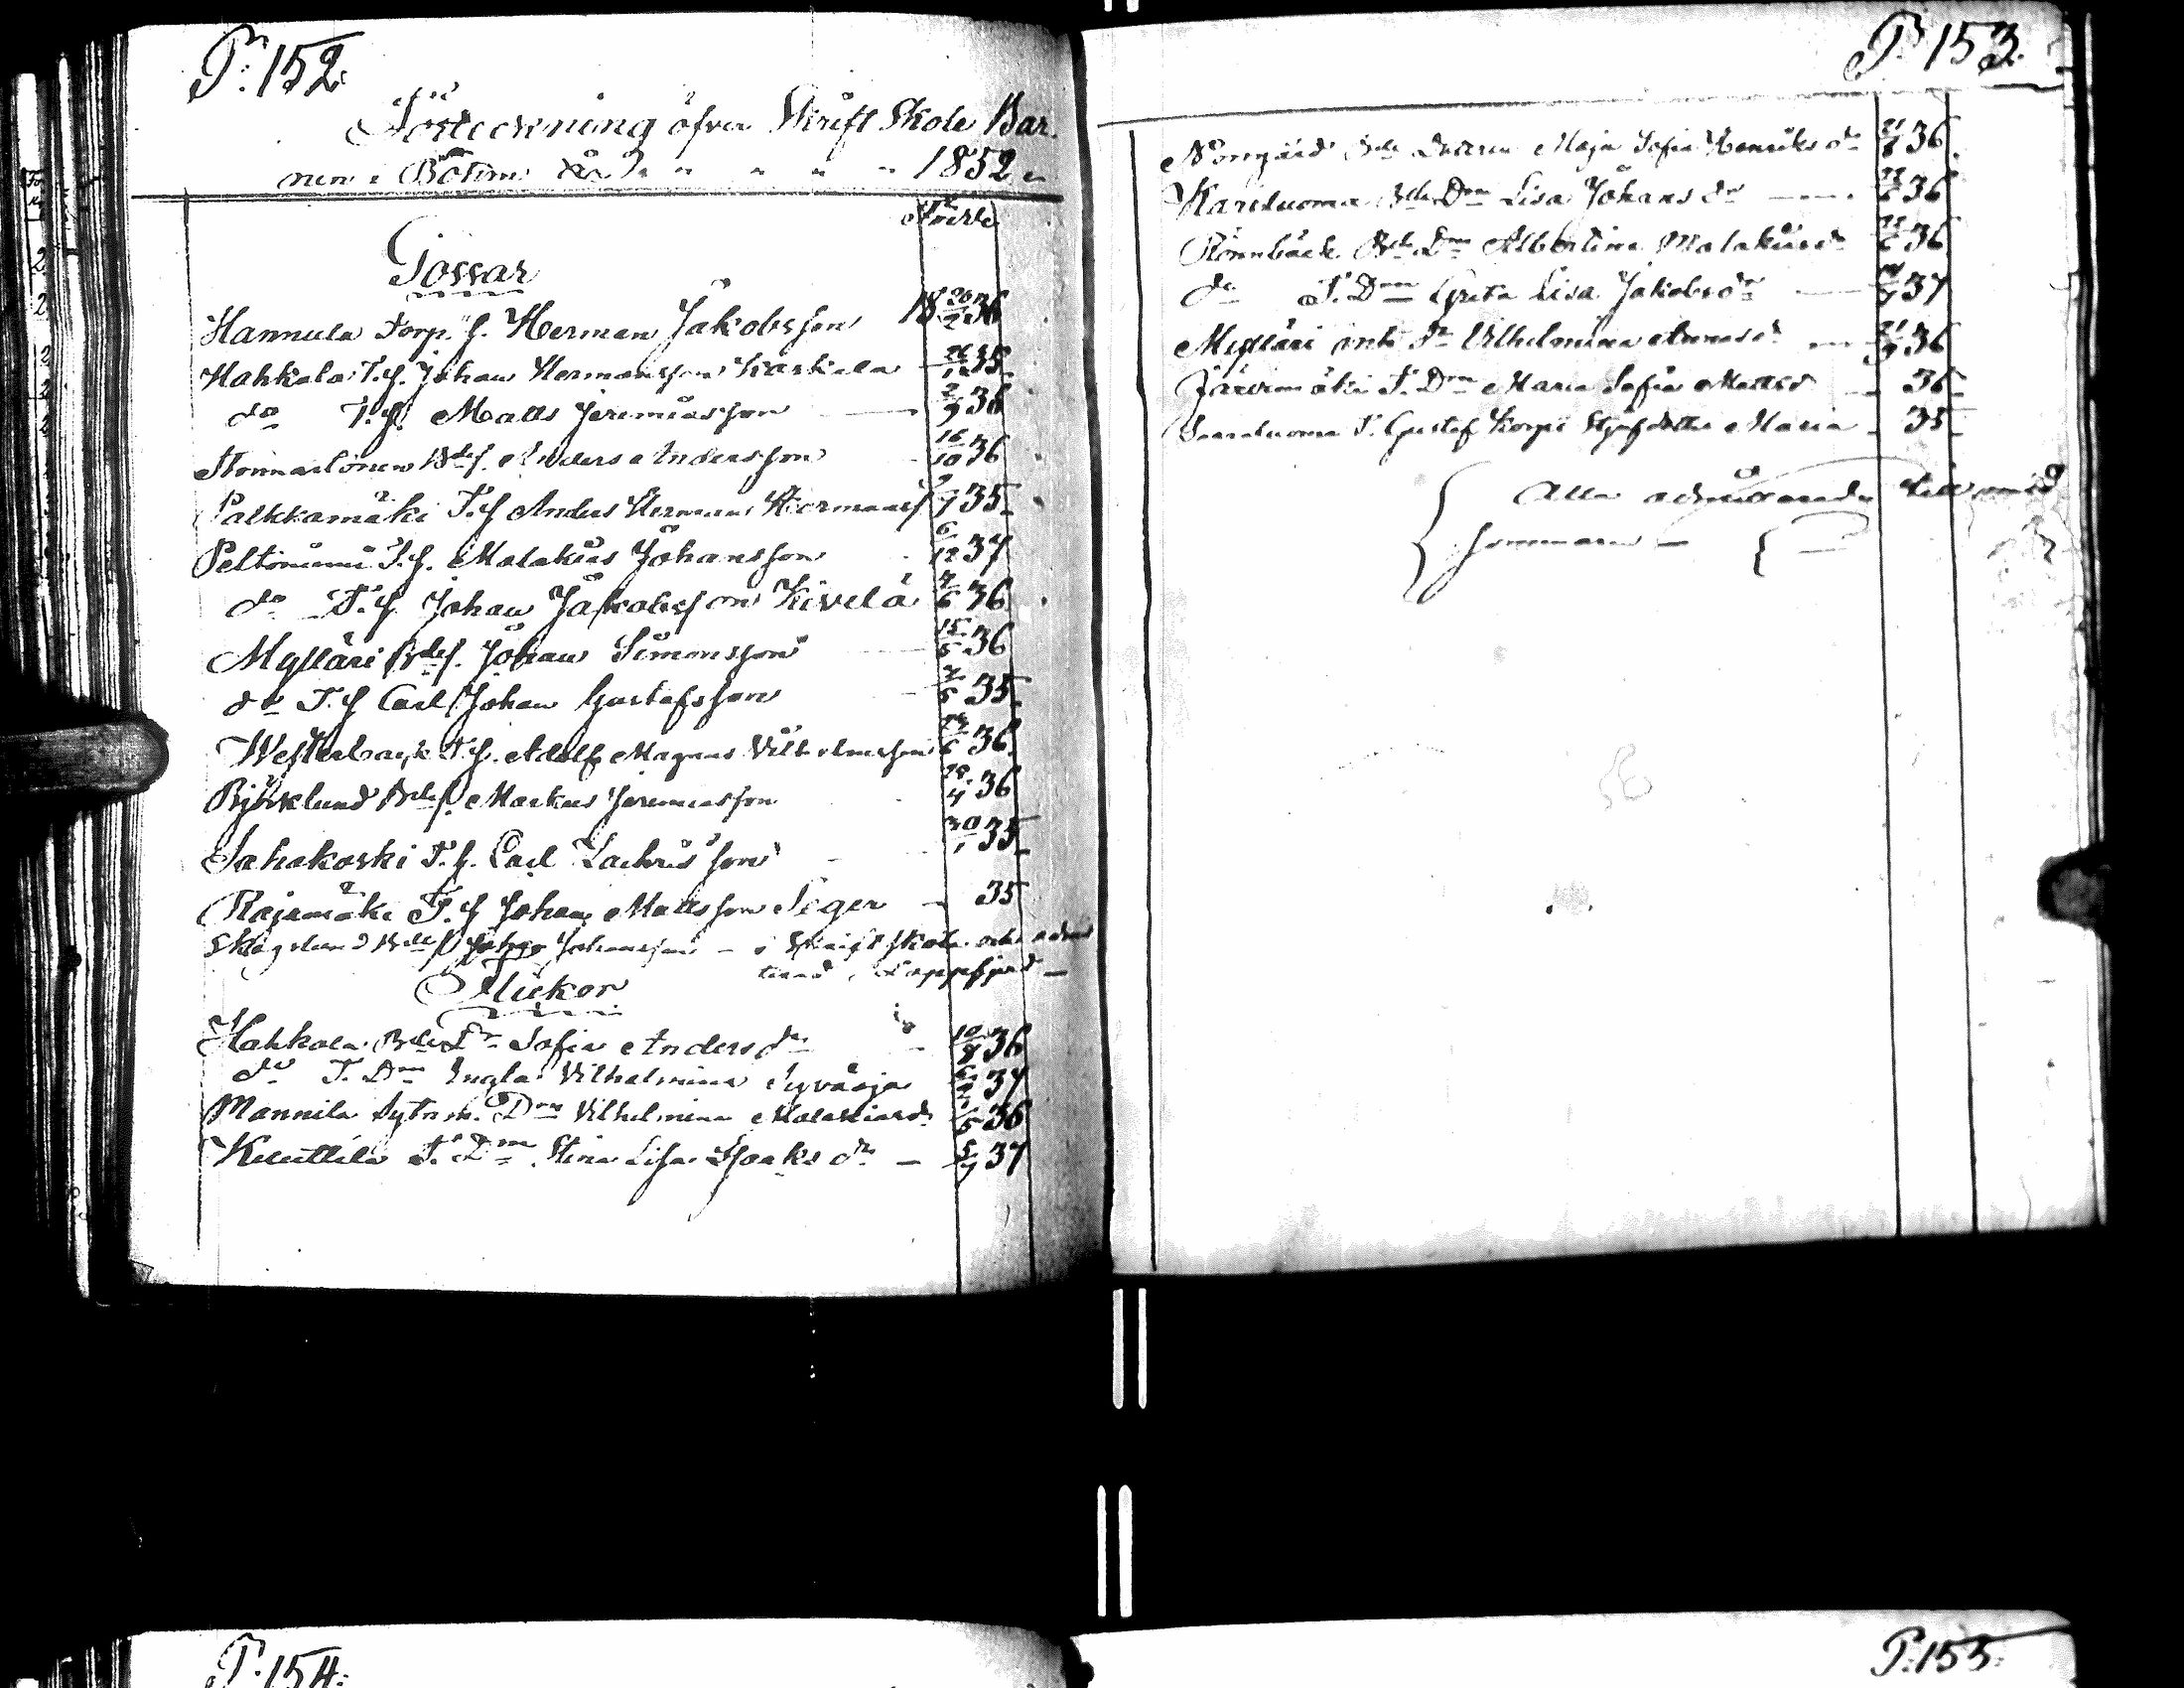 P. 152.
Förteckning öfver Skrift Skole Bar-
nen i Bötom År 1852
Gossar
Hannula Torp. s. Herman Jakobsson 18 20/2 36
Hahkala T.s. Johan Hermansson Kaskala 26/12 35
do T.s. Matts Jeremiasson 2/9 36
Bdes. Anders Andersson 16/10 36
Palkkamäki T.s Anders Herman Hermans 35
Peltoniemi T.s. Malakias Johansson 6/12 37
do T.s Johan Jakobsson Kivelä 4/6 36
Mylläri Bdes. Johan Simonsson 15/5 36
do T.s Carl Johan Gustafsson 35
Westerback T.s. Adolf Magnus Vilhelmsson 36
Björklund Bdes. Markus Jeremiasson 28/4 36
Sahakoski T.s. Carl Zachrisson 30/1 35
Rajamäki T.s Johan Mattsson Seger 35
Skoglund Bdes Johan Johansson – i Skriftskola och admit-
terad i Lappfjerd –
Flickor
Hahkala Bde Dr Sofia Andersdr 10/8 36
do T. Dr Engla Vilhelmina Syväoja 37
Mannila Sytn. Dr Vilhelmina Malakiasdr 36
Knuttila T. Dr Stina Lisa Isaksdr – 5/7 37
P. 153.
Norrgård Bde Dottren Maja Sofia Henriksdr 36
Kariluoma Bde Dr Lisa Johansdr 36
Rönnbäck Bde Dr Albertina Malakiasdr 36
do T. Dr Greta Lisa Jakobsdr 37
Mylläri inh. Dr Vilhelmina 21/9 36
Järvimäki T. Dr Maria Sofia Mattsd 36
T. Gustaf Korpi Styfdotter Maria 35
Alla admitterade till
sommaren –
P. 154.
P. 155.